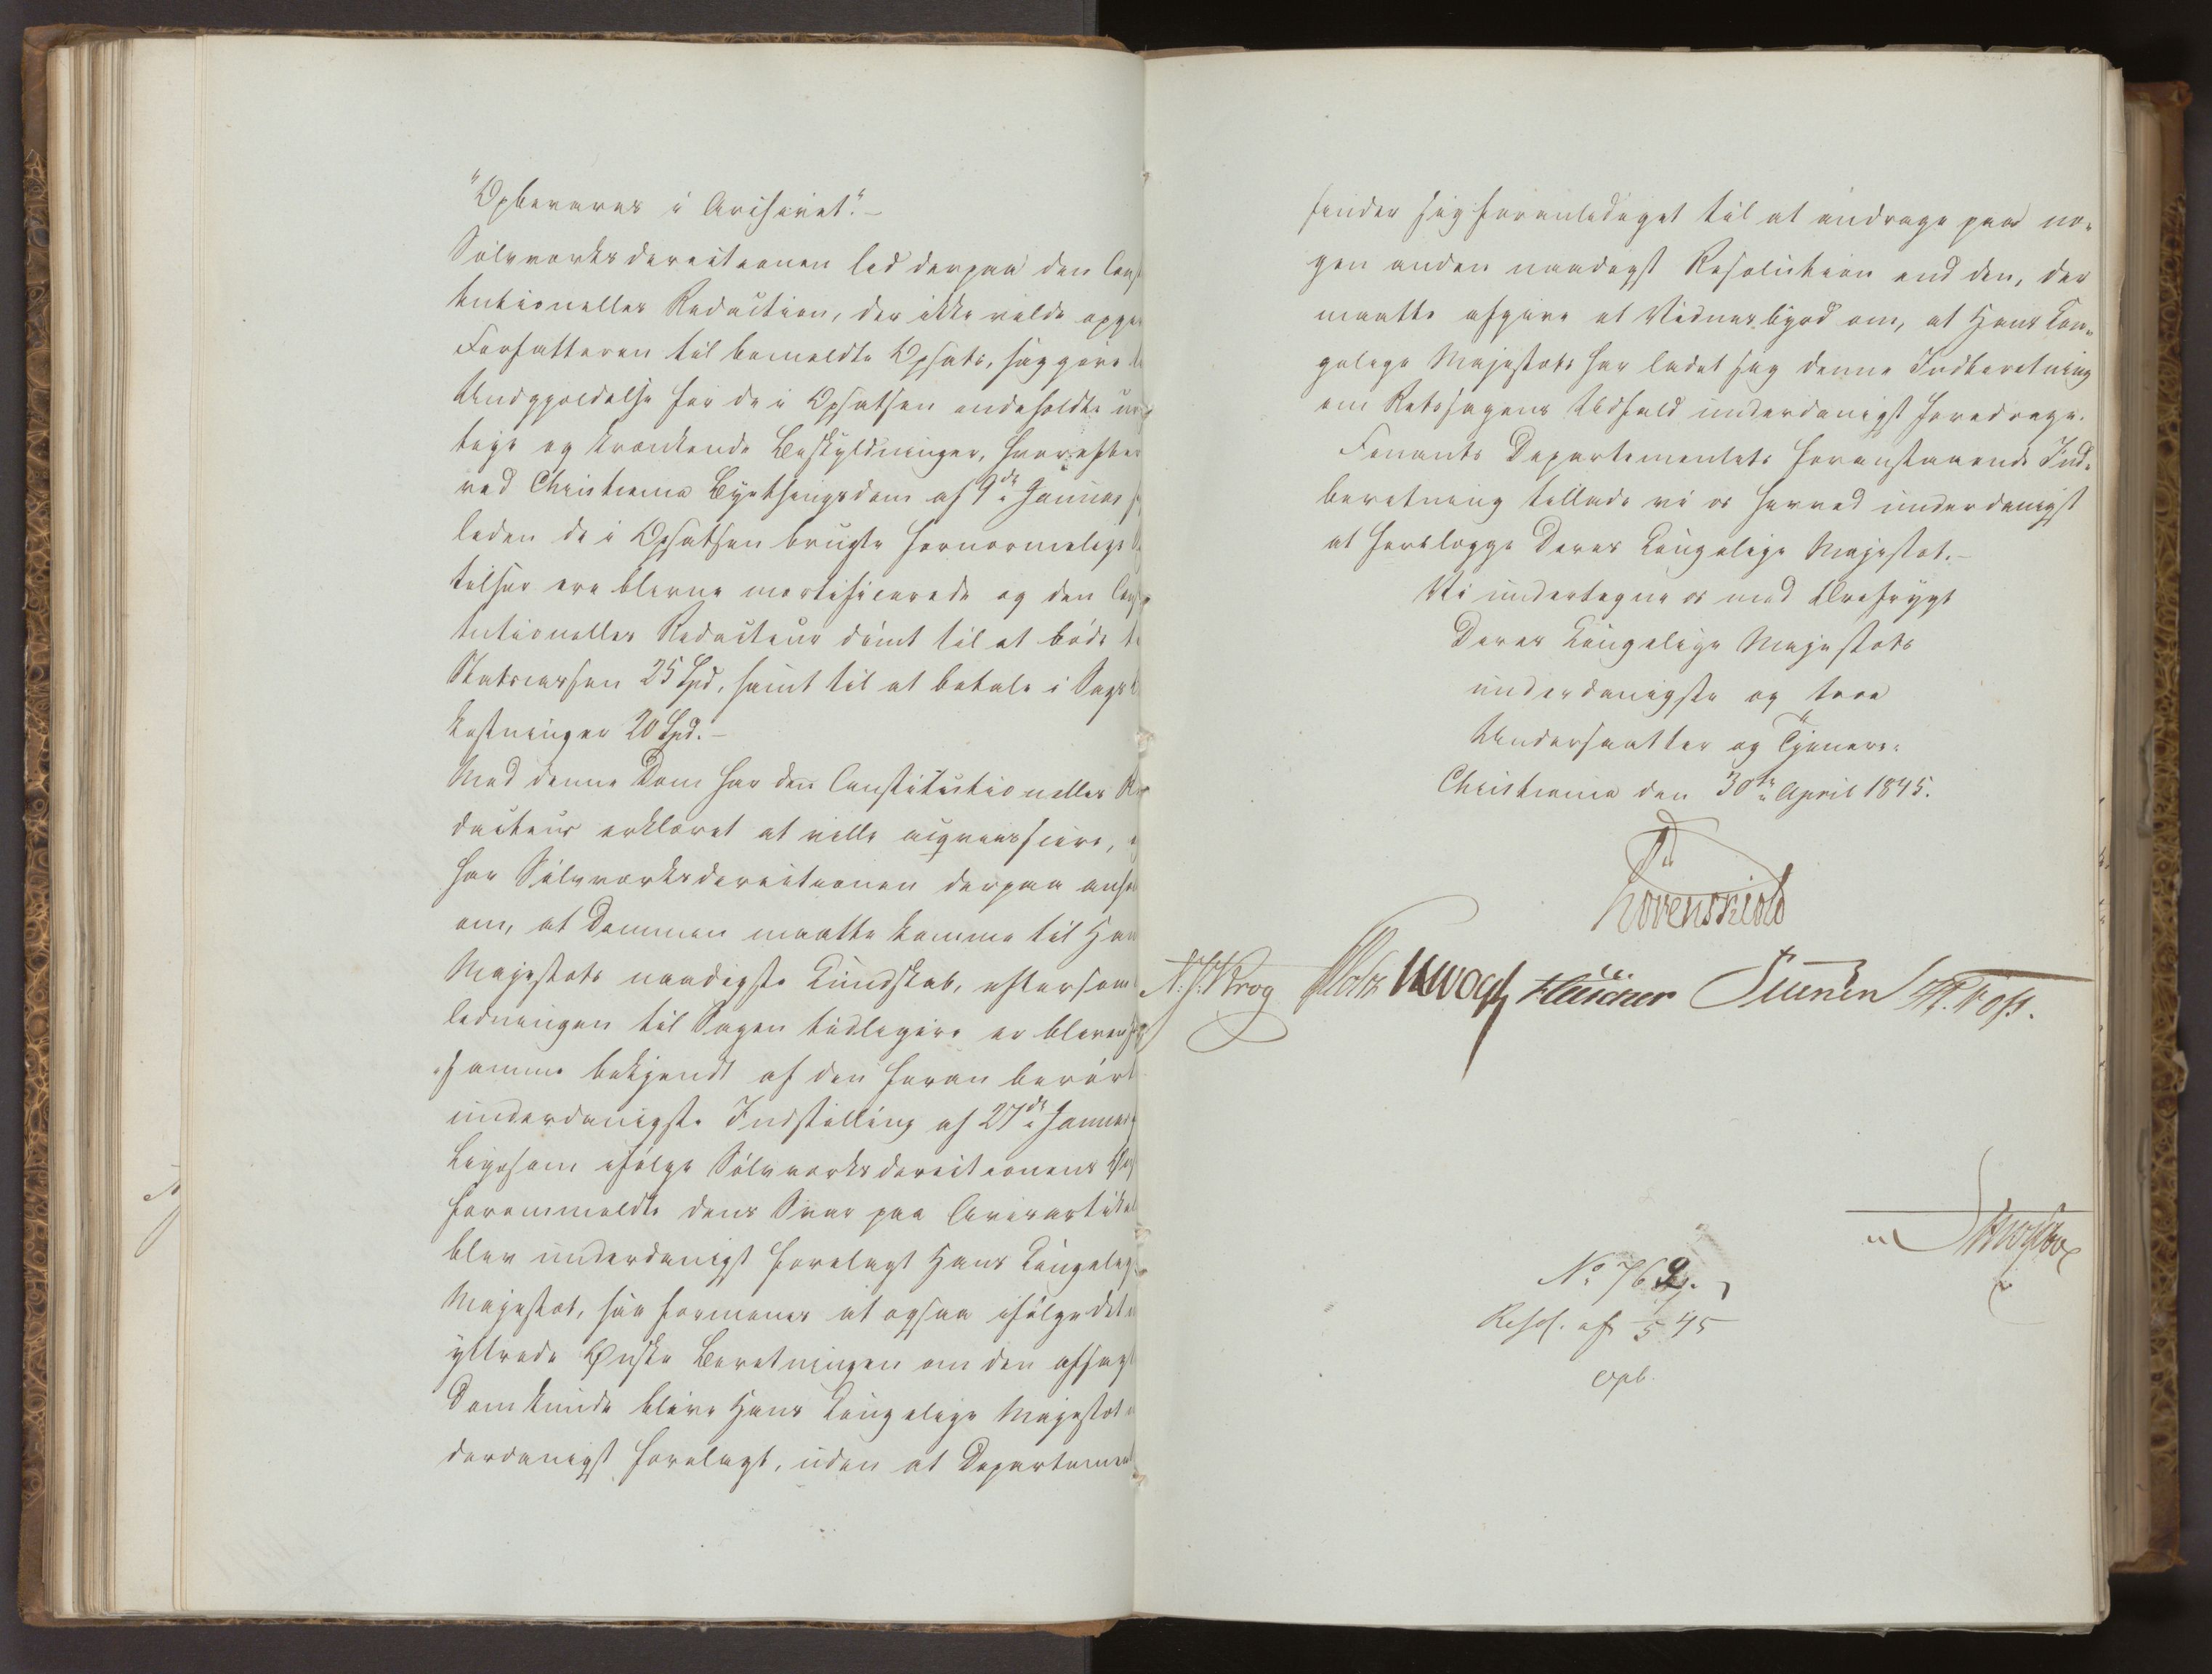 "Opbevares i Archivet." –
Sølvværksdirectionen lod derpaa den Const
tutionelles Redaction, der ikke vilde opgi
Forfatteren til bemeldte Opsats, søggøre
Undgjældelse for de i Opsatsen indeholdte
tige og krænkende Beskyldninger, hvorefter
ved Christiania Byethingsdom af 9de Januar
leden de i Opsatsen brugte fornærmelige
telser ere blevne mortificerede og den Const
tutionelles Redacteur dømt til at bøde
Statscassen 25 Spd, samt til at betale i Sags
kostninger 20 Spd. –
Med denne Dom har den Constitutionelles Re
dacteur erklæret at ville acqviescere,
har Sølvværksdirectionen derpaa anh
om, at Dommen maatte komme til Han
Majestæts naadigste Kundskab, eftersom
ledningen til Sagen tidligere er bleven
samme bekjendt af den foran berørt
underdanigste Indstilling af 27de Januar
Ligesom ifølge Sølvværksdirectionens
forommeldte dens Svar paa Avisartikel
blev underdanigst forelagt Hans Kongelig
Majestæt, saa formenes at ogsaa ifølge det
yttrede Ønske Beretningen om den afsagt
Dom kunde blive Hans Kongelige Majestæt
derdanigst forelagt, uden at Departement
finder sig foranlediget til at andrage paa no-
gen anden naadigst Resolution end den, der
maatte afgive et Vidnesbyrd om, at Hans Kon-
gelige Majestæt har ladet sig denne Indberetning
om Retssagens Udfald underdanigst foredrage.
Finants Departementets foranstaaende Ind-
beretning tillade vi os herved underdanigst
at forelægge Deres Kongelige Majestæt. –
Vi undertegne os med Ærefrygt
Deres Kongelige Majestæts
underdanigste og troe
Undersaatter og Tjenere.
Christiania den 30te April 1845.
Løvenskiold
N. J. Krog Holst Vogt Fleischer Suenen Foss.
No 769.
Resol. af 1/5 45
opb.